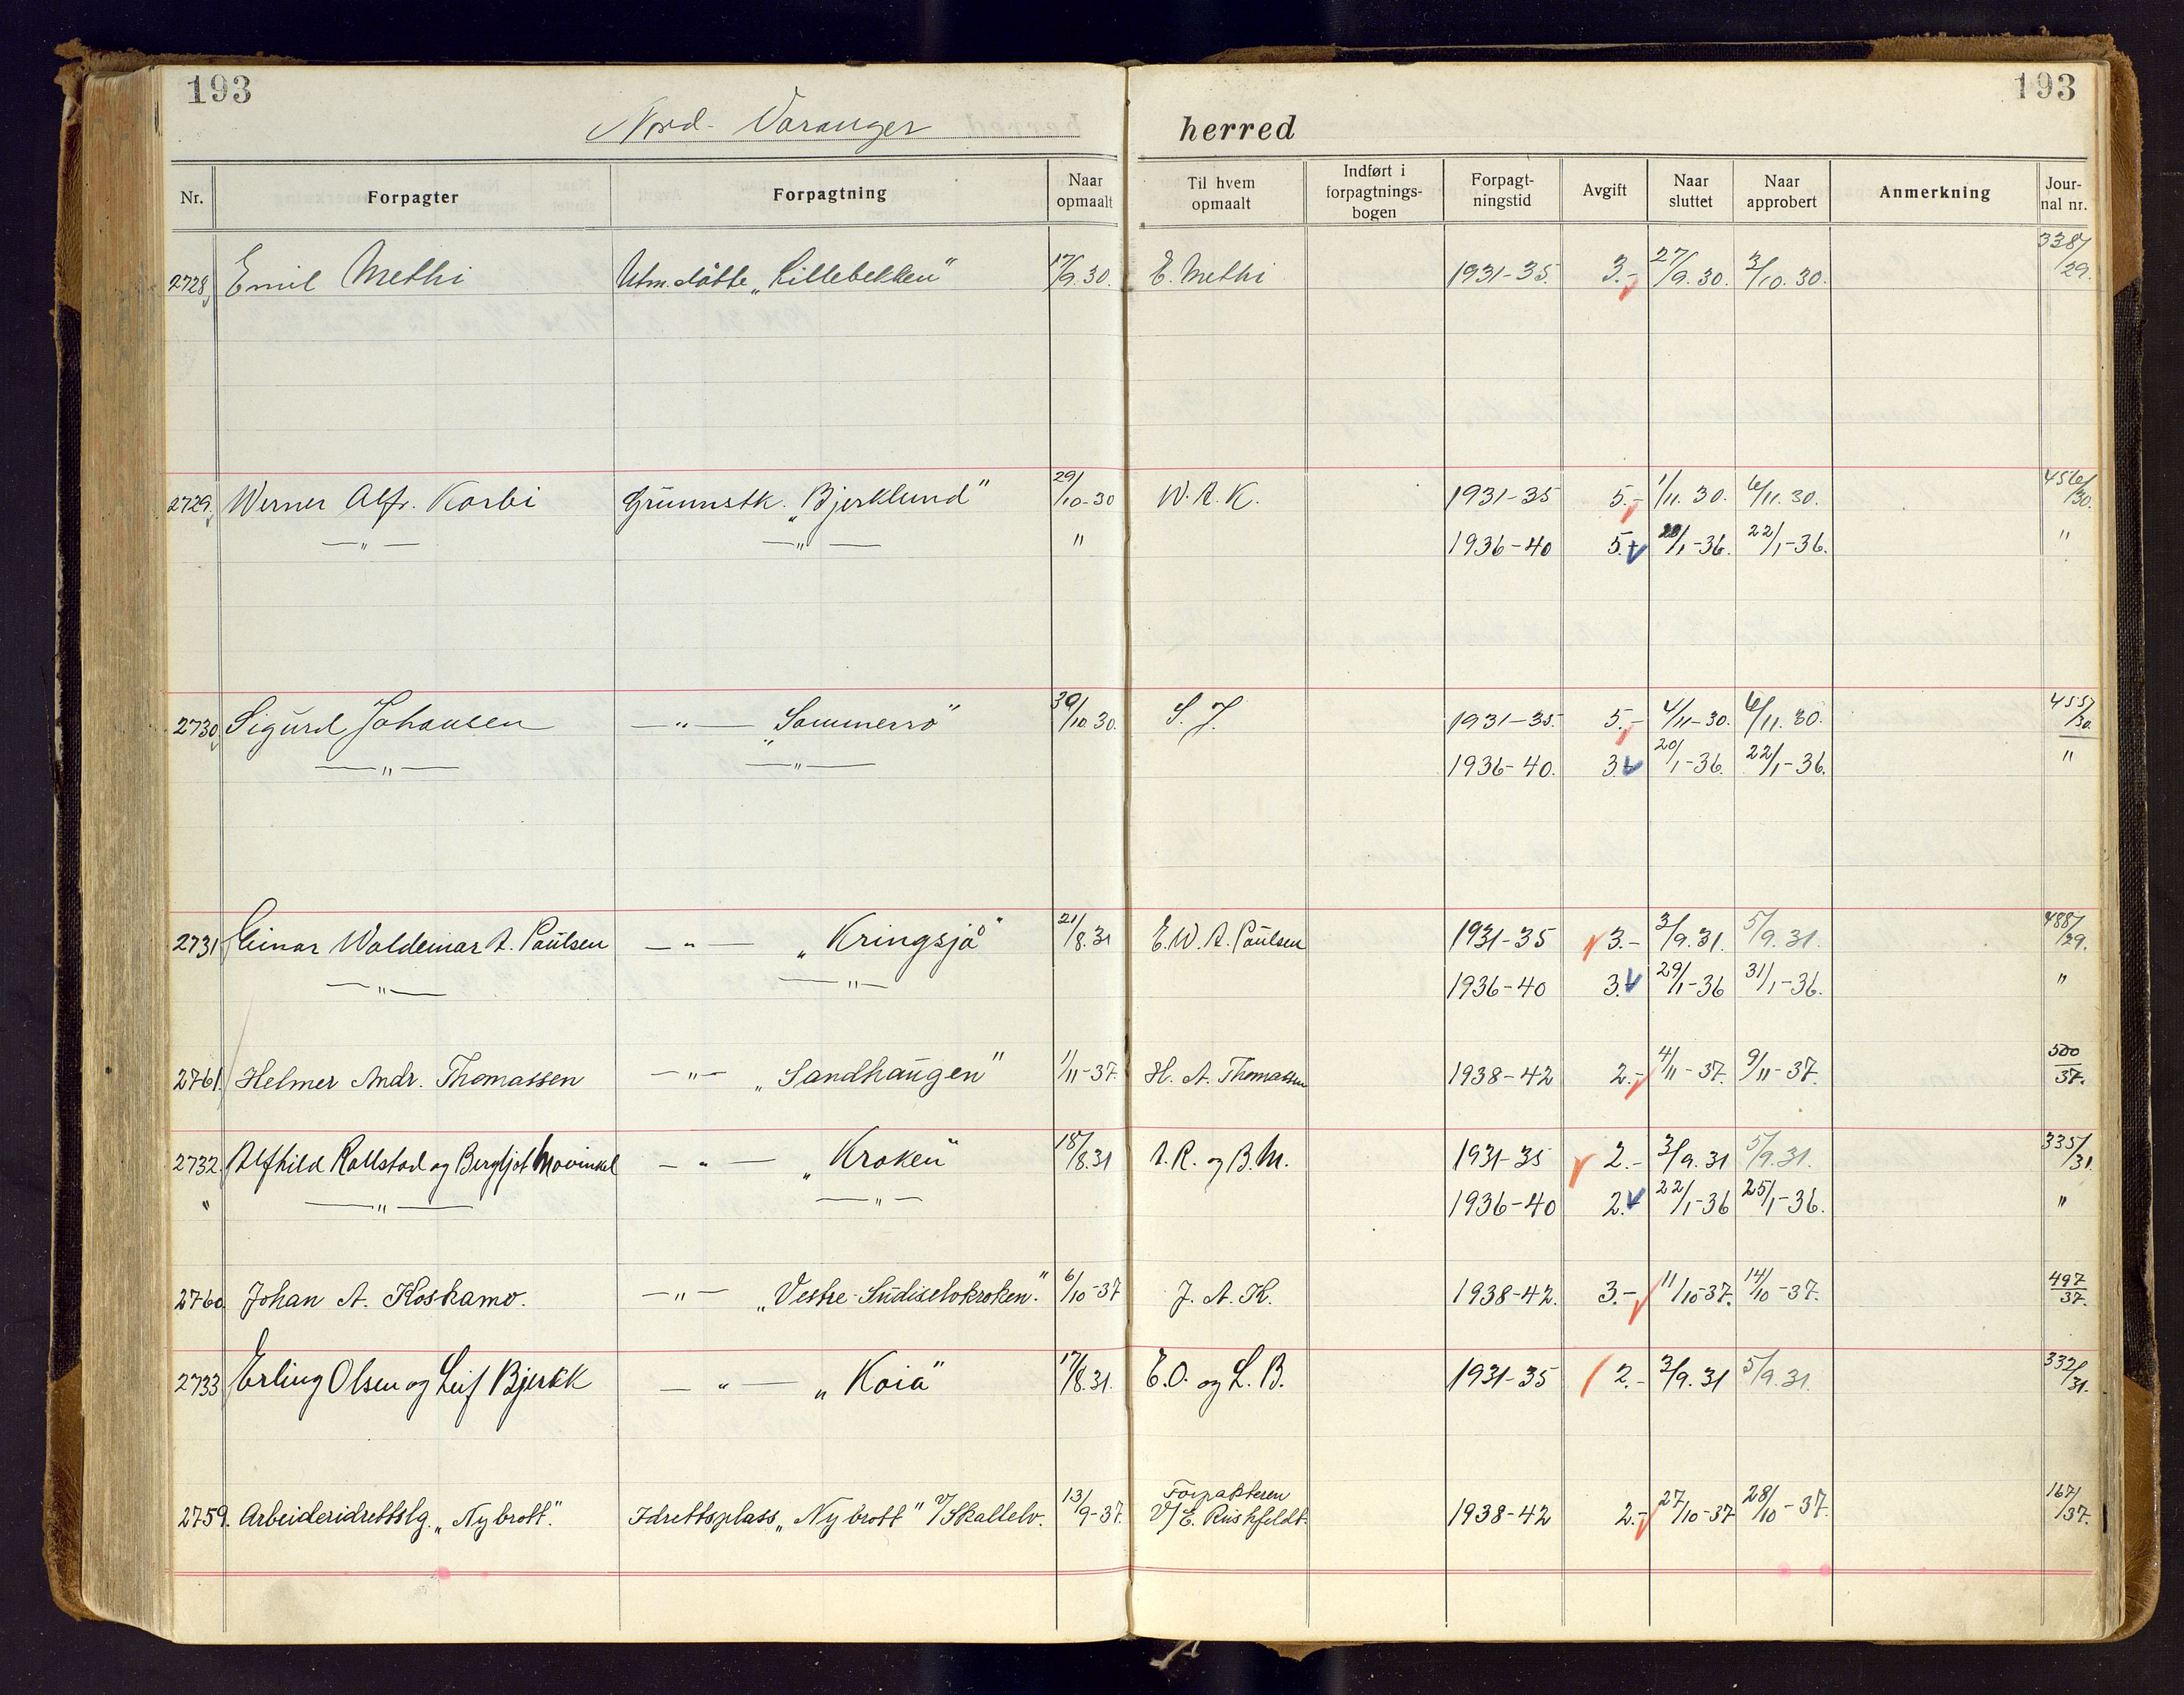 193 193
Nord-Varanger herred
Nr. Forpagter Forpagtning Naar opmaalt Til hvem opmaalt Indført i forpagtnings-bogen Forpagt-ningstid Avgift Naar sluttet Naar approbert Anmerkning Jour-nal nr.
2728 Emil Methi Utm.slåtte „Lillebekken" 17/9.30. E. Methi 1931-35. 3.- 27/9.30. 3/10.30. 3387/29.
2729. Werner Alfr. Korbi Grunnstk. „Bjerklund" 29/10-30 W. A. K. 1931-35 5.- 1/11.30. 6/11.30. 4561/30.
—"— —"— " 1936-40 5.- 20/1-36. 22/1-36. "
2730 Sigurd Johansen —"— „Sommerro" 30/10.30. S. J. 1931-35. 5.- 4/11-30. 6/11.30. 4557/30.
—"— —"— 1936-40. 3.- 20/1-36. 22/1-36. "
2731 Einar Waldemar A. Paulsen —"— „Kringsjå" 21/8.31 E. W. A. Paulsen 1931-35 3.- 3/9.31. 5/9.31. 488/29.
—"— —"— 1936-40 3.- 29/1-36 31/1-36. "
2761. Helmer Andr. Thomassen —"— „Sandhaugen" 1/11-37. H. A. Thomassen 1938-42 2.- 4/11-37. 9/11-37. 500/37.
2732. Alfhild Rollstad og Bergljot Mowinkel —"— „Kroken" 18/8.31 A. R. og B. M. 1931-35 2.- 3/9.31 5/9.31. 335/31.
" —"— —"— 1936-40 2.- 22/1-36 25/1-36. "
2760 Johan A. Koskamo. —"— „Vestre-Sudiselvkroken." 6/10-37 J. A. K. 1938-42. 3.- 11/10-37. 14/10-37. 497/37.
2733 Erling Olsen og Leif Bjerkk —"— „Koia" 17/8.31. E. O. og L. B. 1931-35 2.- 3/9.31 5/9.31. 332/31.
2759. Arbeideridrettslg. „Nybrott". Idrettsplass „Nybrott" v/Skallelv. 13/9-37. Forpakteren v/ E. Rushfeldt. 1938-42 2.- 27/10-37 28/10-37. 167/37.